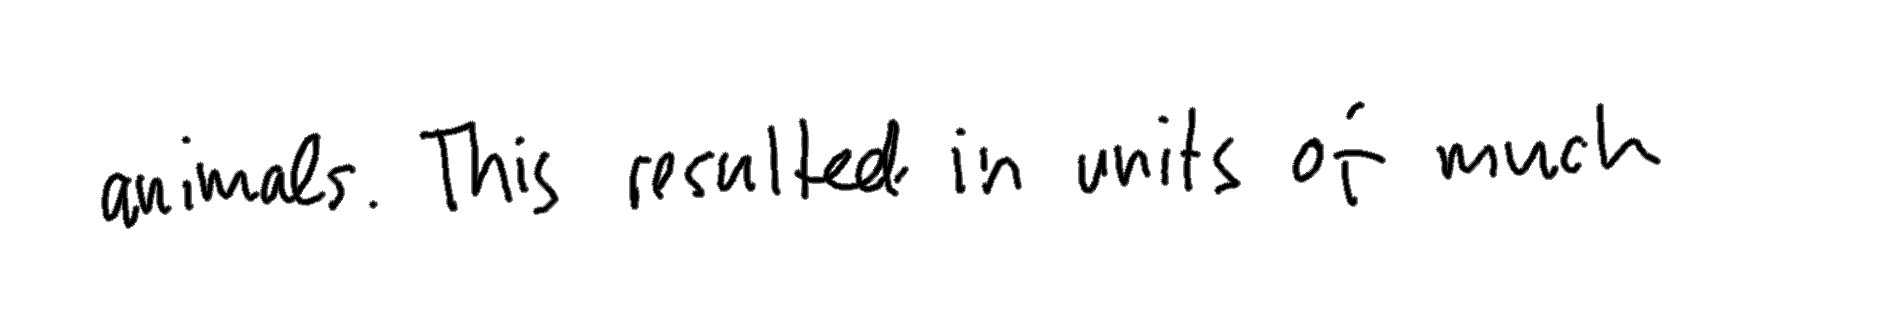 animals. This resulted in units of much